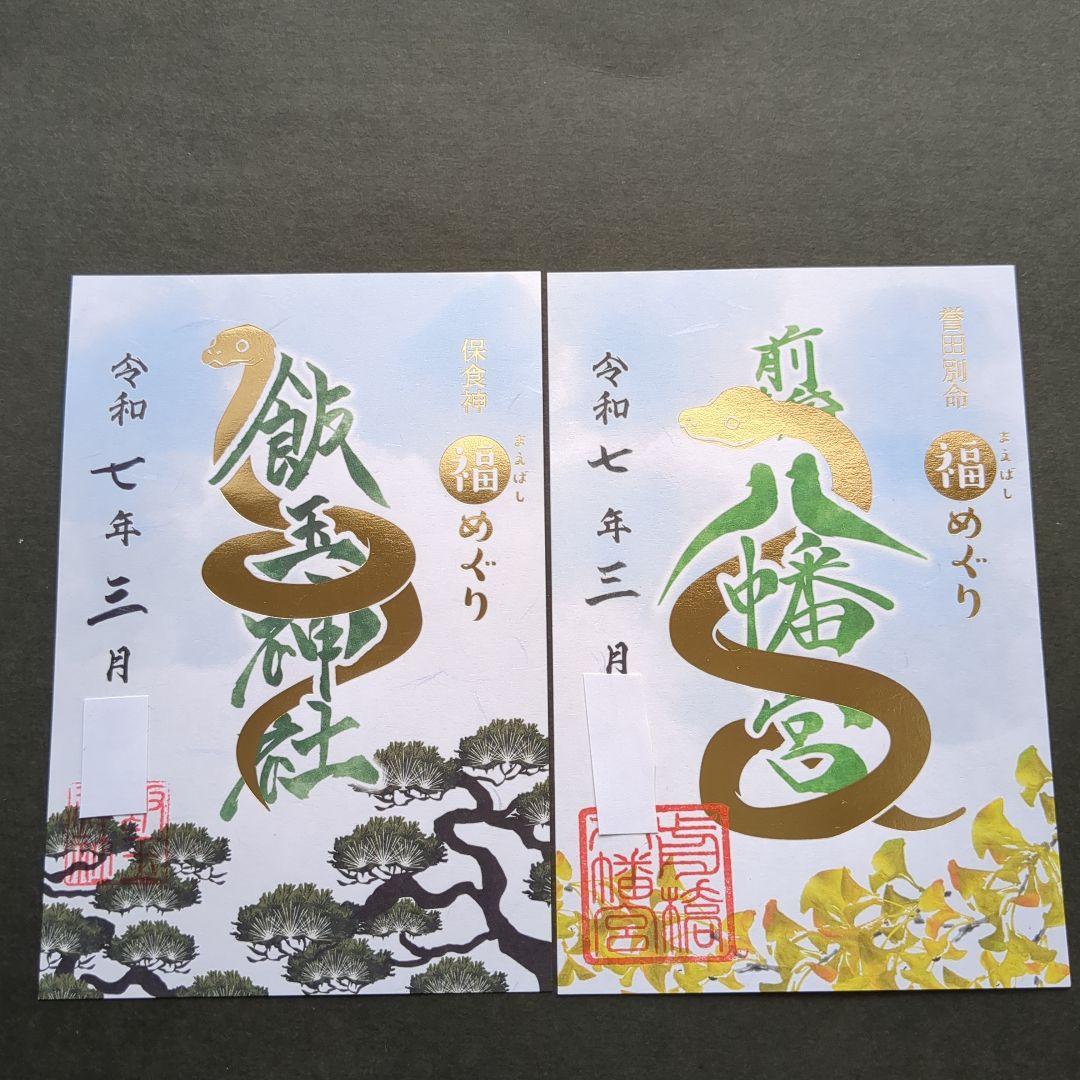 保食神
福めぐり
まえばし
飯玉神社
令和七年三月
誉田別命
福めぐり
まえばし
前橋
八幡宮
令和七年三月
前橋
八幡宮